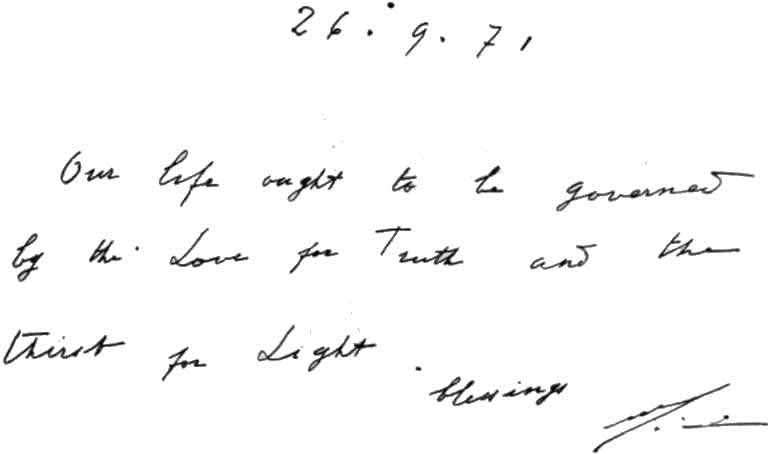 26.9.71
Our life ought to be governed
by the Love for Truth and the
thirst for Light.
blessings